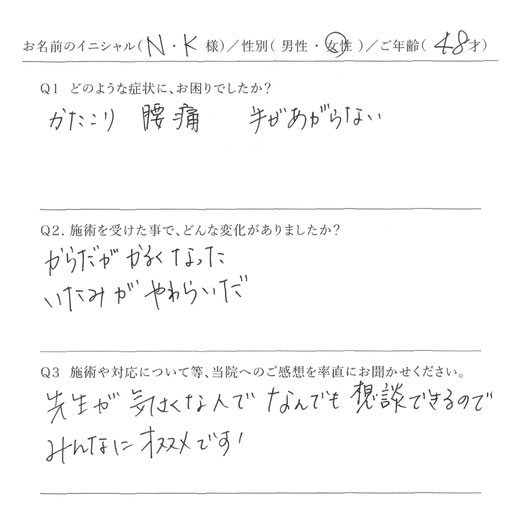 お名前のイニシャル(N・K 様)／性別( 男性・女性 )／ご年齢( 48才)
Q1 どのような症状に、お困りでしたか？
かたこり 腰痛 手があがらない
Q2. 施術を受けた事で、どんな変化がありましたか？
からだが かるくなった
いたみが やわらいだ
Q3 施術や対応について等、当院へのご感想を率直にお聞かせください。
先生が 気さくな人で なんでも 想談できるので
みんなに オススメです!